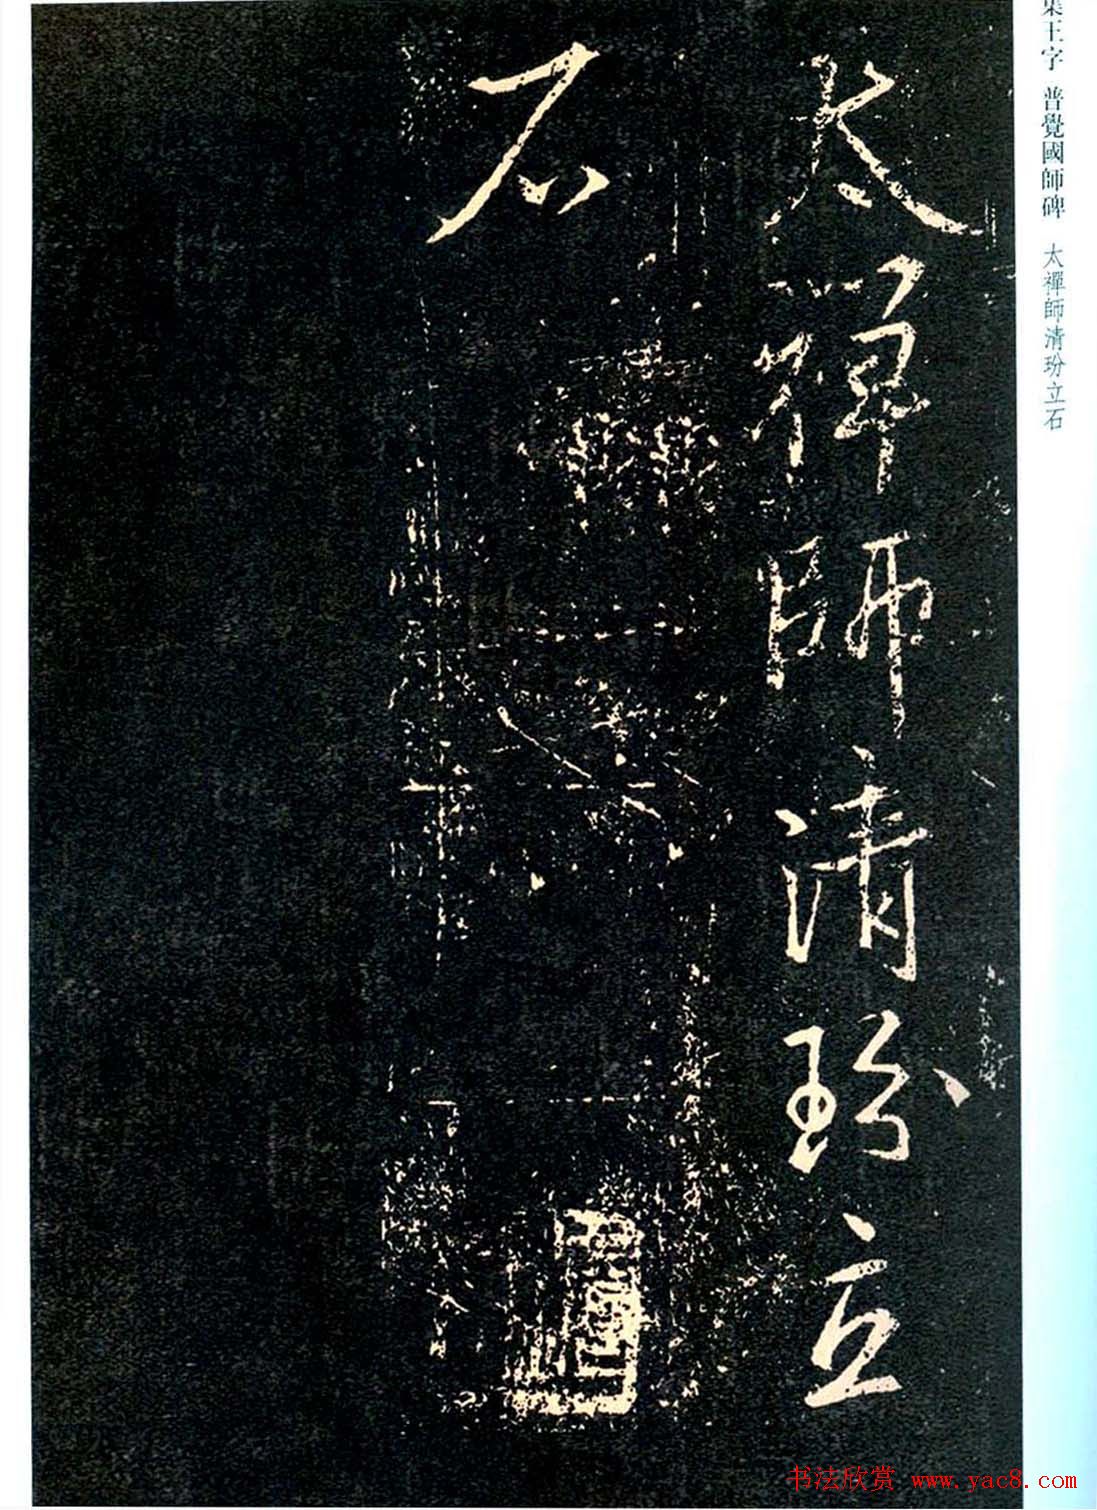 太禪師清玢立
石
集王字 普覺國師碑 太禪師清玢立石
书法欣赏 www.yac8.com